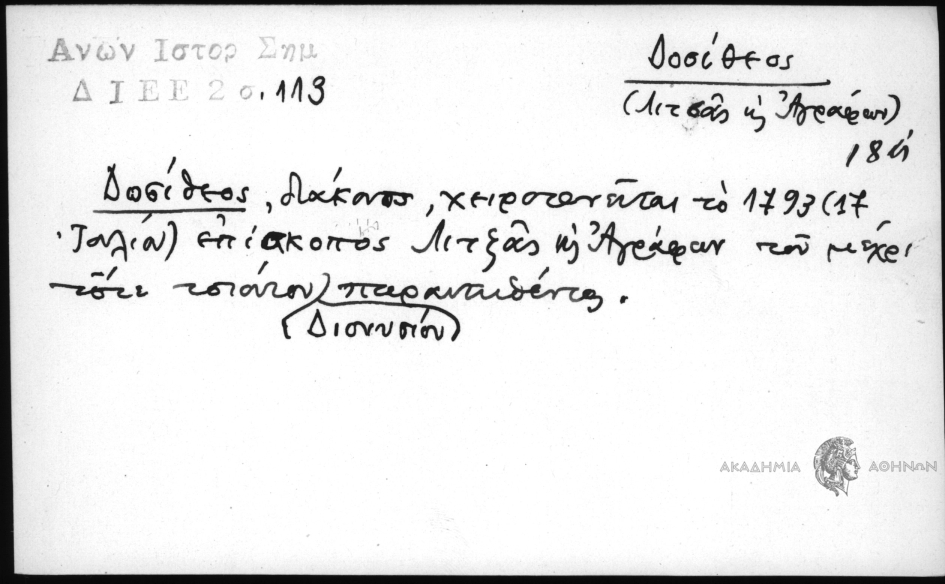 Ανών Ιστορ Σημ
ΔΙΕΕ 2 σ. 113
Δοσίθεος
(Λιτσᾶς κ Ἀγράφων)
Δοσίθεος, διάκονος, χειροτονεῖται τὸ 1793 (17
Ἰουλίου) ἐπίσκοπος Λιτζᾶς κ Ἀγράφων τοῦ μέχρι
τότε τοιούτου παραιτηθέντος.
(Διονυσίου)
ΑΚΑΔΗΜΙΑ ΑΘΗΝΩΝ